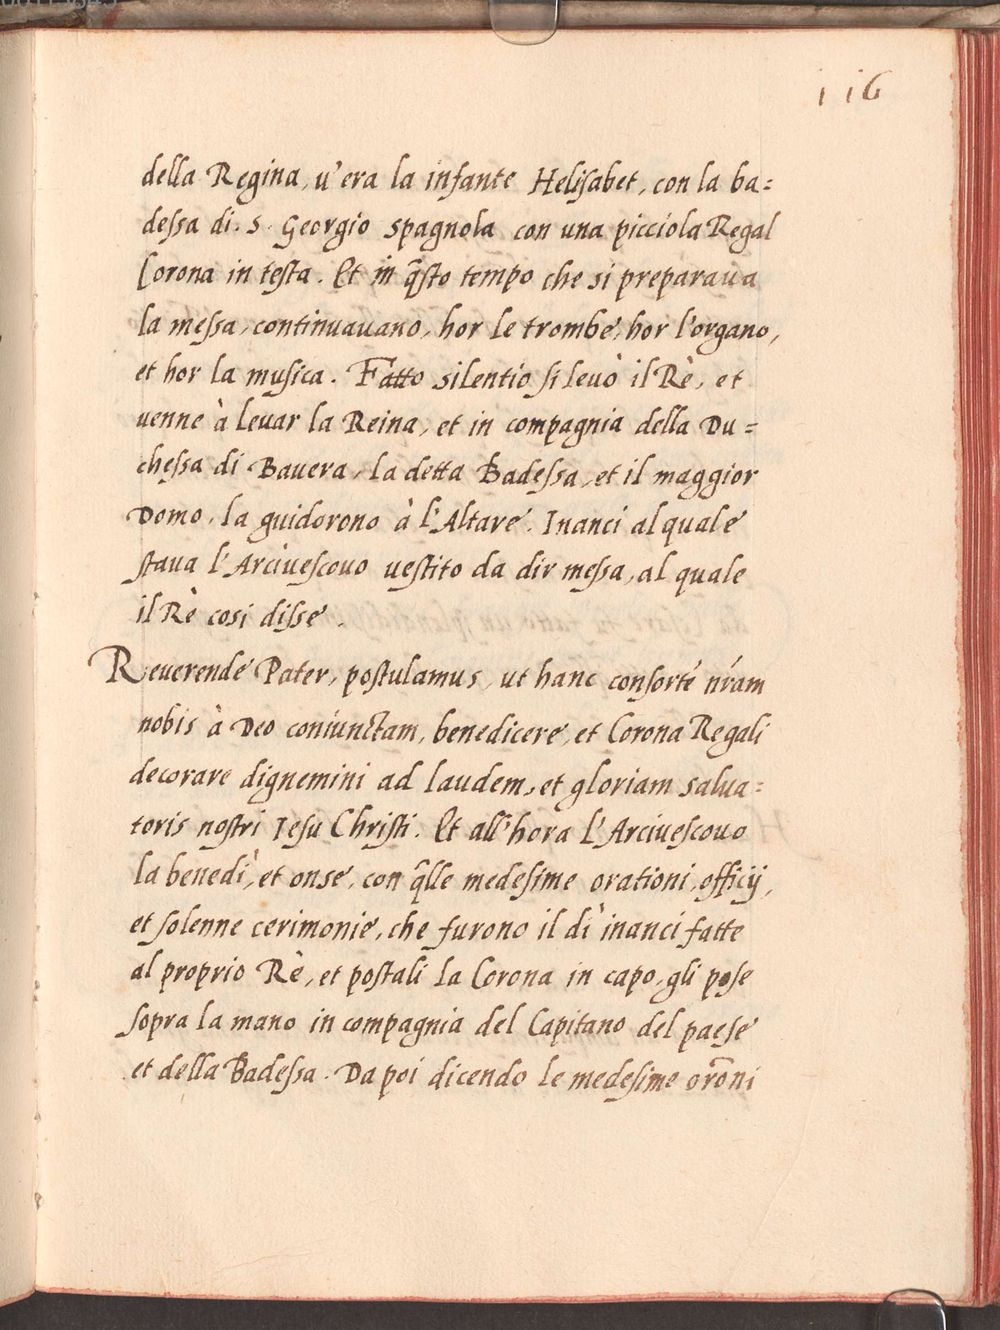 116
della Regina, u'era la infante Helisabet, con la ba=
dessa di. S. Georgio spagnola con una picciola Regal
Corona in testa. Et in q̃sto tempo che si preparaua
la messa, continuauano, hor le trombe, hor l'organo,
et hor la musica. Fatto silentio si leuò il Rè, et
uenne à leuar la Reina, et in compagnia della Du=
chessa di Bauera, la detta Badessa, et il maggior
Domo, la guidorono à l'Altare. Inanci al quale
staua l'Arciuescouo uestito da dir messa, al quale
il Rè cosi disse.
Reuerende Pater, postulamus, ut hanc consorté nr̃am
nobis à Deo coniunctam, benedicere, et Corona Regali
decorare dignemini ad laudem, et gloriam salua=
toris nostri Jesu Christi. Et all'hora l'Arciuescouo
la benedì, et onse, con q̃lle medesime orationi, officij,
et solenne cerimonie, che furono il dì inanci fatte
al proprio Rè, et postali la Corona in capo, gli pose
sopra la mano in compagnia del Capitano del paese
et della Badessa. Da poi dicendo le medesime orõni